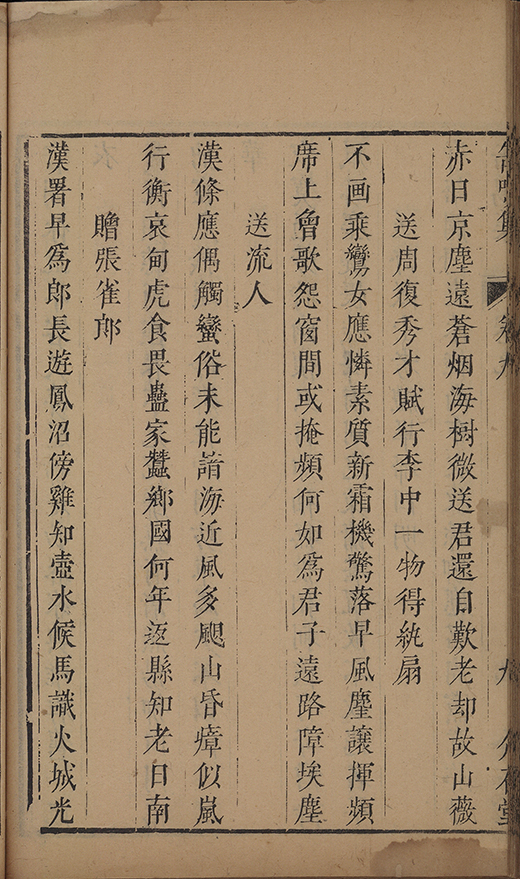 赤日京塵遠蒼烟海樹微送君還自歎老却故山薇
送周復秀才賦行李中一物得紈扇
不画乘鸞女應憐素質新霜機驚落早風塵讓揮頻
席上曾歌怨窗間或掩頻何如為君子遠路障埃塵
送流人
漢條應偶觸蠻俗未能諳海近風多颶山昏瘴似嵐
行衝哀甸虎食畏蠱家蠶鄉國何年返縣知老日南
贈張雀郎
漢署早為郎長遊鳳沼傍雞知壺水候馬識火城光